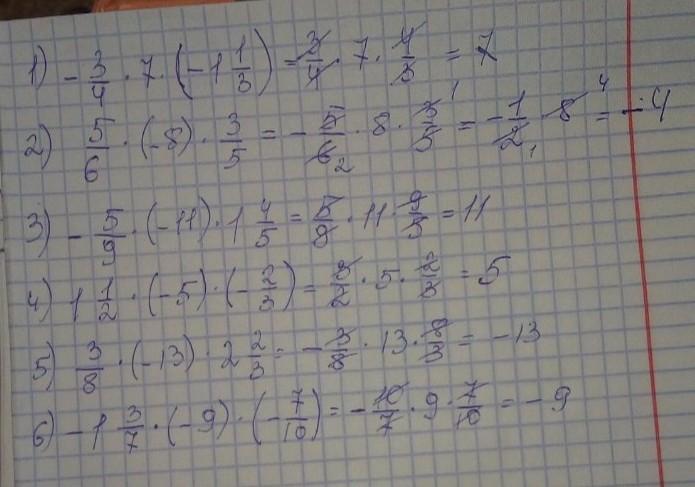 1) - 3/4 · 7 · (-1 1/3) = 3/4 · 7 · 4/3 = 7
2) 5/6 · (-8) · 3/5 = - 5/6 2 · 8 · 3/5 1 = - 1/2 1 · 8 4 = - 4
3) - 5/9 · (-11) · 1 4/5 = 5/9 · 11 · 9/5 = 11
4) 1 1/2 · (-5) · (- 2/3) = 3/2 · 5 · 2/3 = 5
5) 3/8 · (-13) · 2 2/3 = - 3/8 · 13 · 8/3 = - 13
6) - 1 3/7 · (-9) · (- 7/10) = - 10/7 · 9 · 7/10 = - 9